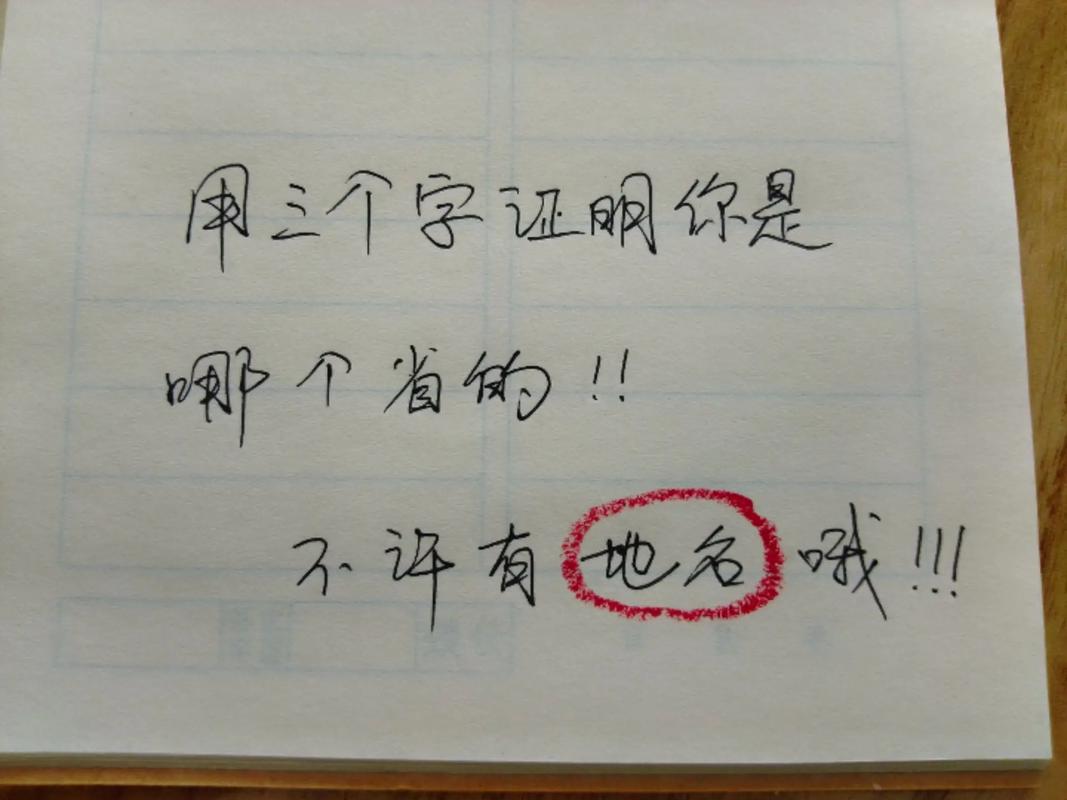 用三个字证明你是
哪个省的!!
不许有地名哦!!!